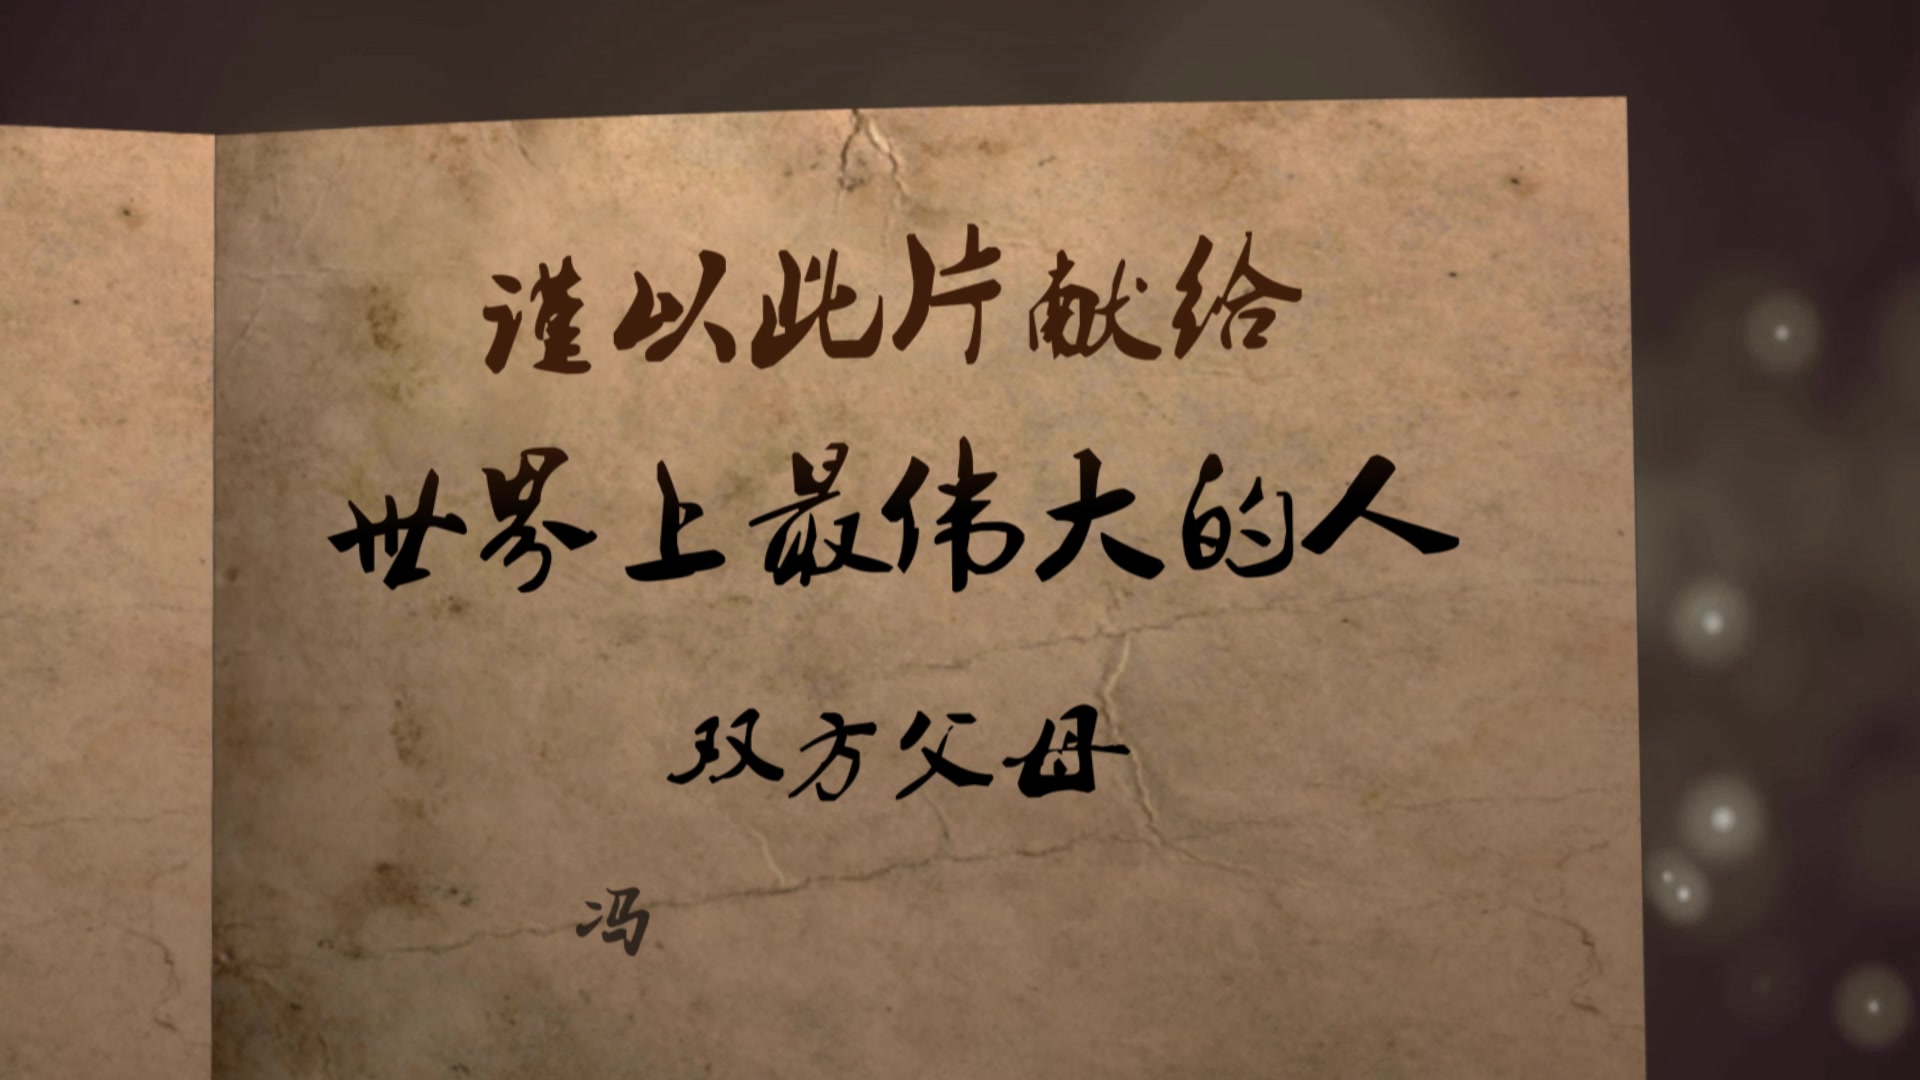 谨以此片献给
世界上最伟大的人
双方父母
冯